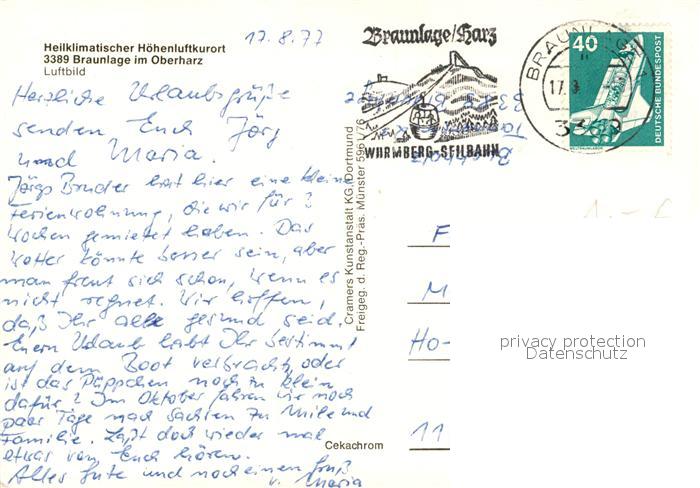 17.8.77
Heilklimatischer Höhenluftkurort
3389 Braunlage im Oberharz
Luftbild
Herzliche Urlaubsgrüße
senden Euch Jörg
und Maria.
Jörgs Bruder hat hier eine kleine
Ferienwohnung, die wir für 2
Wochen gemietet haben. Das
Wetter könnte besser sein, aber
man freut sich schon, wenn es
nicht regnet. Wir hoffen,
daß Ihr alle gesund seid.
Euern Urlaub habt Ihr bestimmt
auf dem Boot verbracht, oder
ist das Püppchen noch zu klein
dafür? Im Oktober fahren wir noch
paar Tage nach Sachsen zu und
Familie. Laßt doch wieder mal
etwas von Euch hören.
Alles Gute und noch einen Gruß
v. Maria
Cekachrom
Cramers Kunstanstalt KG, Dortmund
Freigeg. d. Reg.-Präs. Münster 5961/76
Braunlage/Harz
WURMBERG-SEILBAHN
BRAUNLAGE
17.8
40
DEUTSCHE BUNDESPOST
1.-
F
M
Ho-
11
privacy protection
Datenschutz